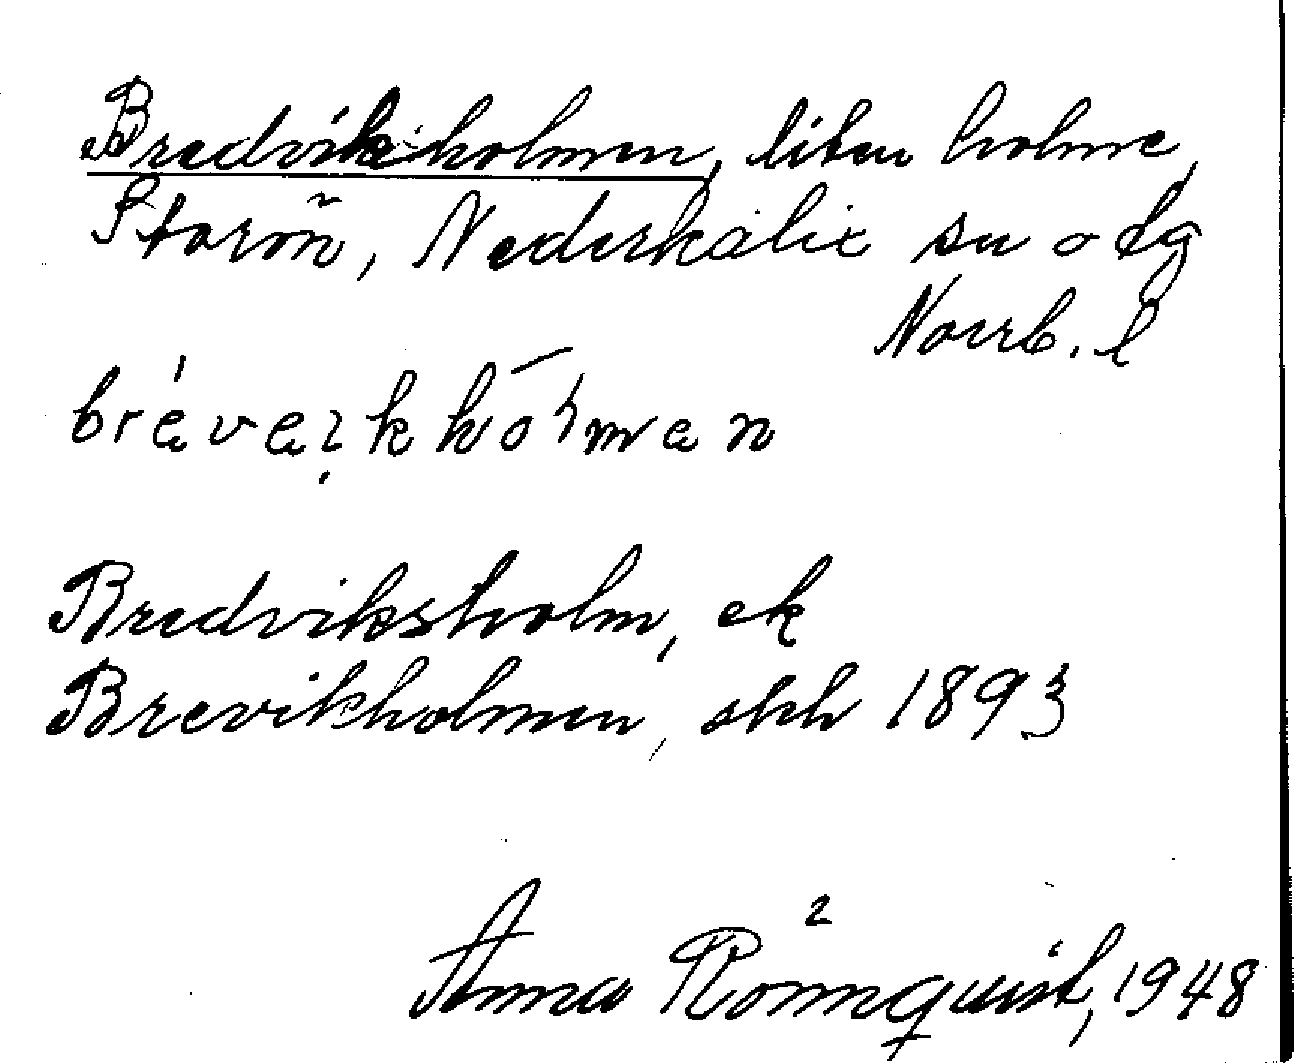 Bredvikholmen, liten holme,
Storön, Nederkalix sn o tg
Norrb. l
Bredviksholm, ek
Brevikholmen, shh 1893
Anna Rönnquist, 1948